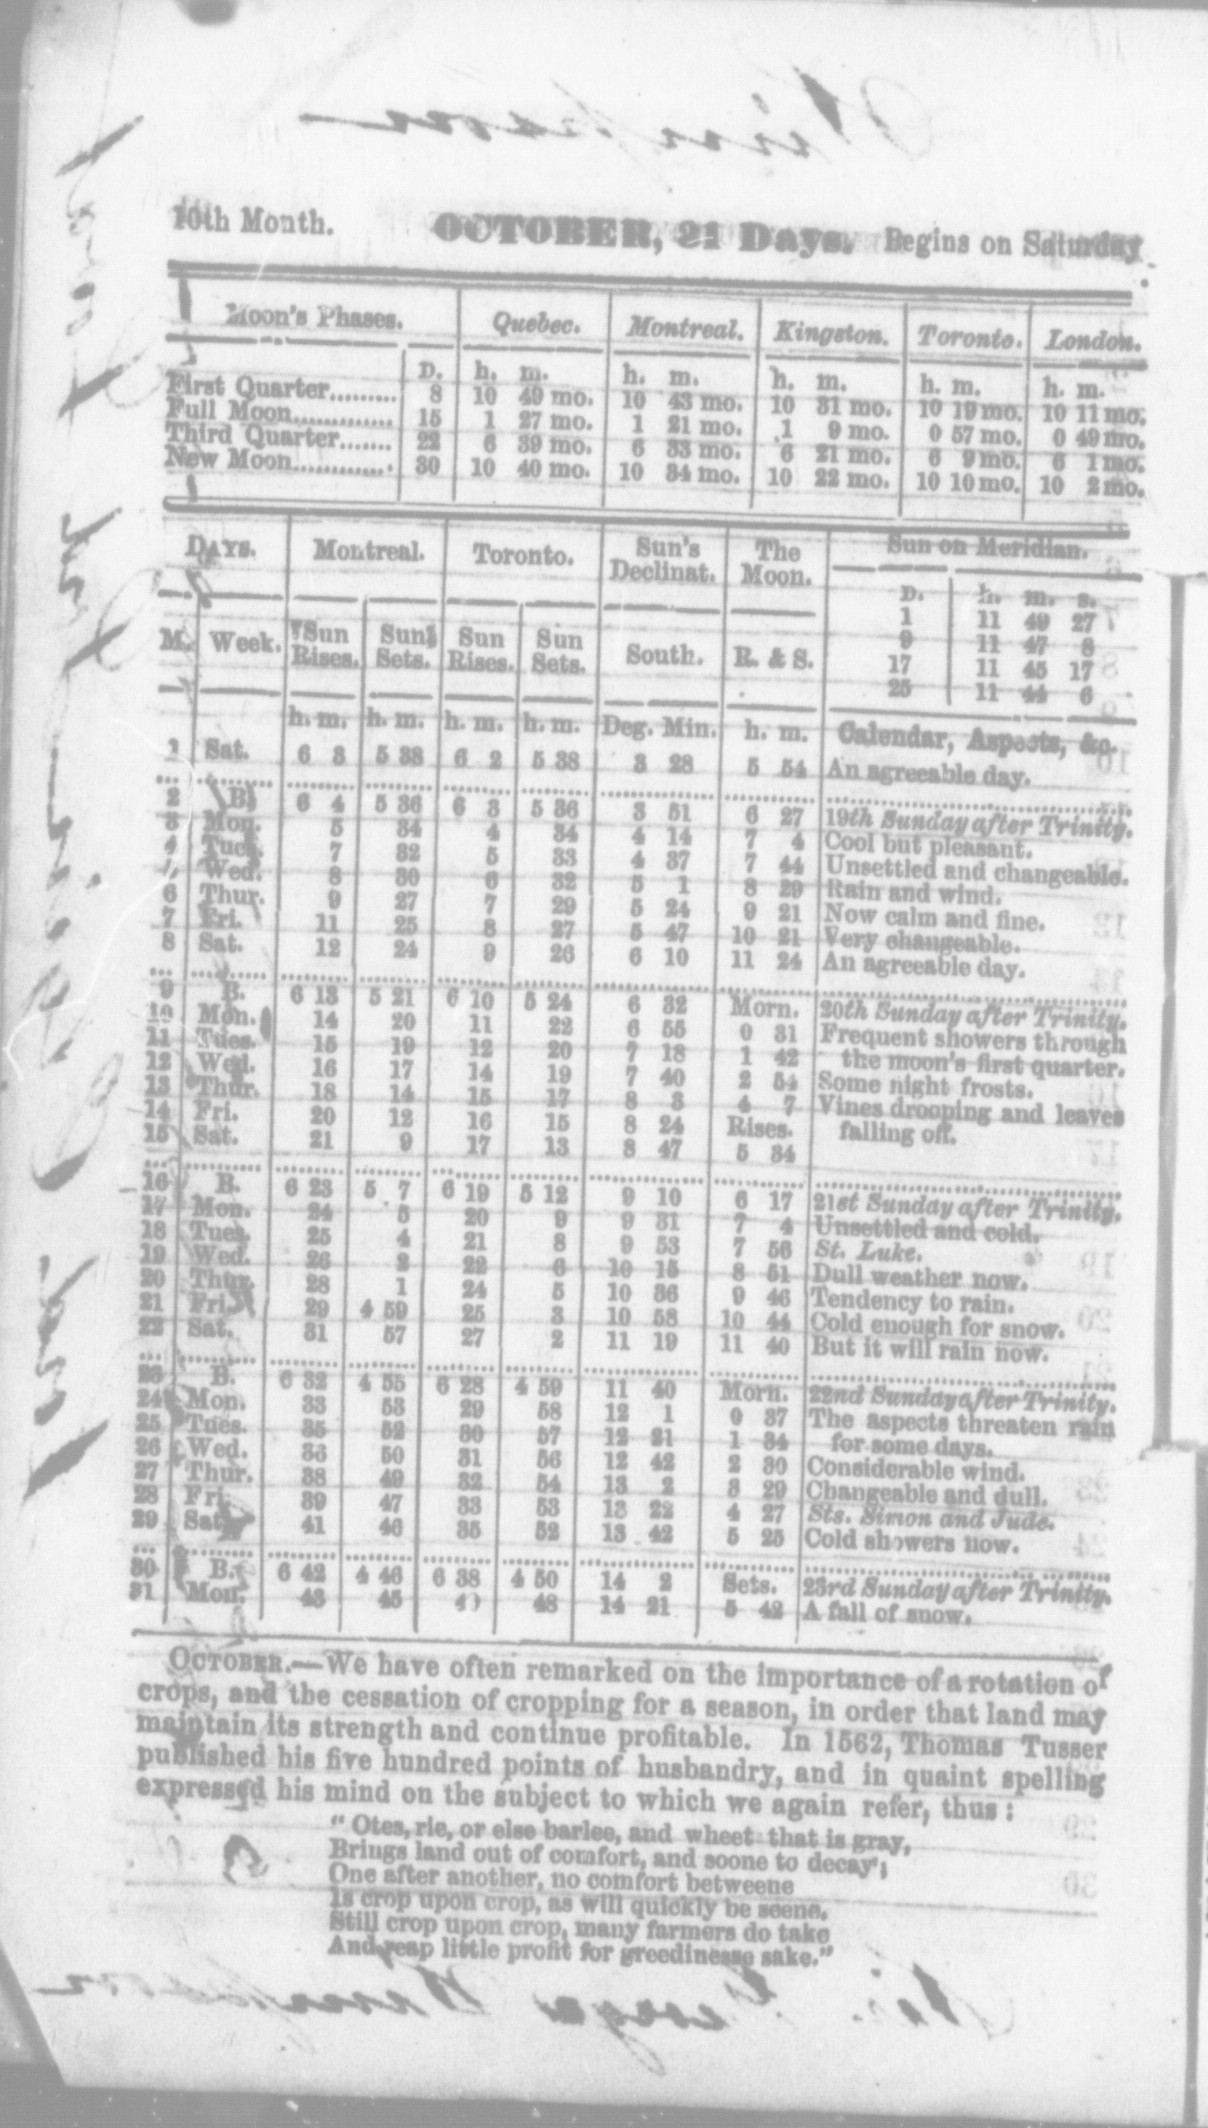 10th Month. OCTOBER, 31 Days. Begins on Saturday
Moon's Phases. Quebec. Montreal. Kingston. Toronto. London.
D. h. m. h. m. h. m. h. m. h. m.
First Quarter......... 8 10 49 mo. 10 43 mo. 10 31 mo. 10 19 mo. 10 11 mo.
Full Moon............. 15 1 27 mo. 1 21 mo. 1 9 mo. 0 57 mo. 0 49 mo.
Third Quarter....... 22 6 39 mo. 6 33 mo. 6 21 mo. 6 9 mo. 6 1 mo.
New Moon............. 30 10 40 mo. 10 34 mo. 10 22 mo. 10 10 mo. 10 2 mo.
DAYS. Montreal. Toronto. Sun's Declinat. The Moon. Sun on Meridian.
D. h. m. s.
1 11 49 27
9 11 47 8
17 11 45 17
25 11 44 6
M. Week. Sun Rises. Sun Sets. Sun Rises. Sun Sets. South. R. & S.
h. m. h. m. h. m. h. m. Deg. Min. h. m. Calendar, Aspects, &c.
1 Sat. 6 3 5 38 6 2 5 38 3 28 5 54 An agreeable day.
2 B. 6 4 5 36 6 3 5 36 3 51 6 27 19th Sunday after Trinity.
3 Mon. 5 34 4 34 4 14 7 4 Cool but pleasant.
4 Tues. 7 32 5 33 4 37 7 44 Unsettled and changeable.
Wed. 8 30 6 32 5 1 8 29 Rain and wind.
6 Thur. 9 27 7 29 5 24 9 21 Now calm and fine.
7 Fri. 11 25 8 27 5 47 10 21 Very changeable.
8 Sat. 12 24 9 26 6 10 11 24 An agreeable day.
9 B. 6 13 5 21 6 10 5 24 6 32 Morn. 20th Sunday after Trinity.
10 Mon. 14 20 11 22 6 55 0 31 Frequent showers through
11 Tues. 15 19 12 20 7 18 1 42 the moon's first quarter.
12 Wed. 16 17 14 19 7 40 2 54 Some night frosts.
13 Thur. 18 14 15 17 8 3 4 7 Vines drooping and leaves
14 Fri. 20 12 16 15 8 24 Rises. falling off.
15 Sat. 21 9 17 13 8 47 5 34
16 B. 6 23 5 7 6 19 5 12 9 10 6 17 21st Sunday after Trinity.
17 Mon. 24 5 20 9 9 31 7 4 Unsettled and cold.
18 Tues. 25 4 21 8 9 53 7 56 St. Luke.
19 Wed. 26 2 22 6 10 15 8 51 Dull weather now.
20 Thur. 28 1 24 5 10 36 9 46 Tendency to rain.
21 Fri. 29 4 59 25 3 10 58 10 44 Cold enough for snow.
22 Sat. 31 57 27 2 11 19 11 40 But it will rain now.
23 B. 6 32 4 55 6 28 4 59 11 40 Morn. 22nd Sunday after Trinity.
24 Mon. 33 53 29 58 12 1 0 37 The aspects threaten rain
25 Tues. 35 52 30 57 12 21 1 34 for some days.
26 Wed. 36 50 31 56 12 42 2 30 Considerable wind.
27 Thur. 38 49 32 54 13 2 3 29 Changeable and dull.
28 Fri. 39 47 33 53 13 22 4 27 Sts. Simon and Jude.
29 Sat. 41 46 35 52 13 42 5 25 Cold showers now.
30 B. 6 42 4 46 6 38 4 50 14 2 Sets. 23rd Sunday after Trinity.
31 Mon. 43 45 48 14 21 5 42 A fall of snow.
OCTOBER.—We have often remarked on the importance of a rotation of
crops, and the cessation of cropping for a season, in order that land may
maintain its strength and continue profitable. In 1562, Thomas Tusser
published his five hundred points of husbandry, and in quaint spelling
expressed his mind on the subject to which we again refer, thus:
"Otes, rie, or else barlee, and wheet that is gray,
Brings land out of comfort, and soone to decay;
One after another, no comfort betweene
Is crop upon crop, as will quickly be seene.
Still crop upon crop, many farmers do take
And reap little profit for greedinesse sake."